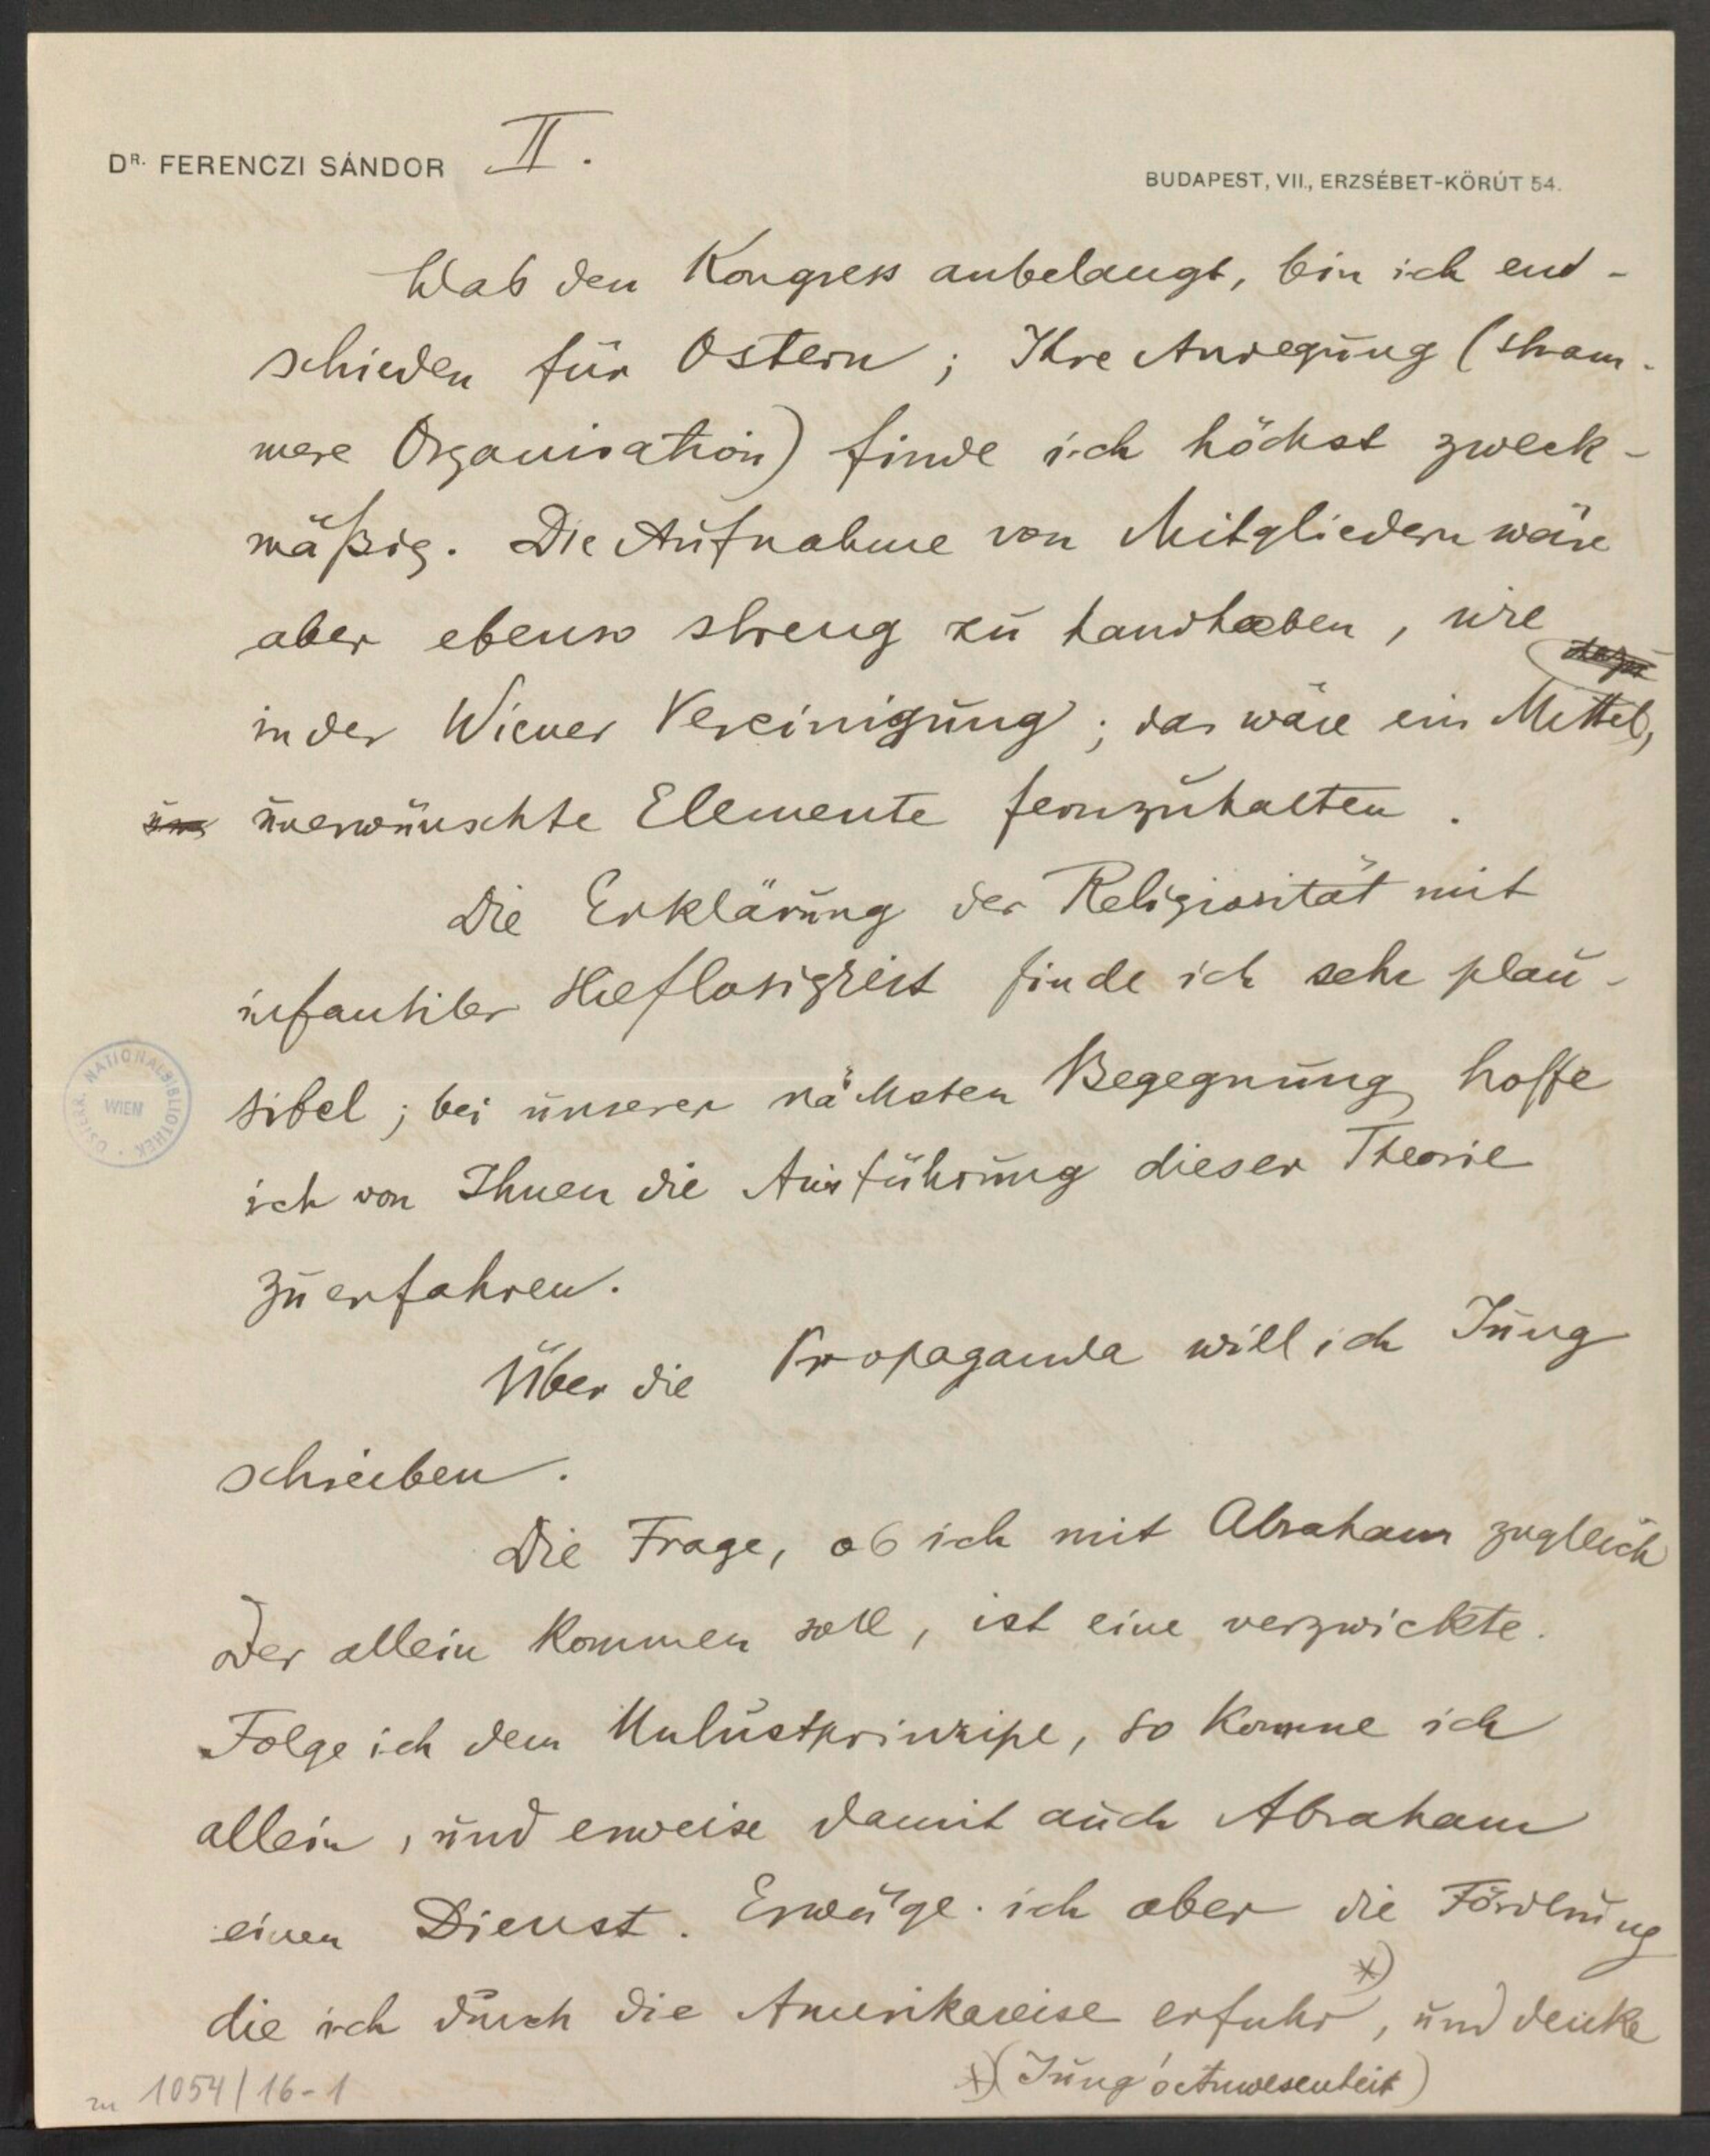 DR. FERENCZI SÁNDOR II.
BUDAPEST, VII., ERZSÉBET-KÖRÚT 54.
Was den Kongress anbelangt, bin ich ent-
schieden für Ostern; Ihre Anregung (stram-
mere Organisation) finde ich höchst zweck-
mäßig. Die Aufnahme von Mitgliedern wäre
aber ebenso streng zu handhaben, wie
in der Wiener Vereinigung; das wäre ein Mittel,
unerwünschte Elemente fernzuhalten.
Die Erklärung der Religiosität mit
infantiler Hilflosigkeit finde ich sehr plau-
sibel; bei unserer nächsten Begegnung hoffe
ich von Ihnen die Ausführung dieser Theorie
zu erfahren.
Über die Propaganda will ich Jung
schreiben.
Die Frage, ob ich mit Abraham zugleich
oder allein kommen soll, ist eine verzwickte.
Folge ich dem Unlustprinzipe, so komme ich
allein, und erweise damit auch Abraham
einen Dienst. Erwäge ich aber die Förderung
die ich durch die Amerikareise erfuhr *), und denke
*) (Jung's Anwesenheit)
zu 1054/16-1
ÖSTERR. NATIONALBIBLIOTHEK
WIEN